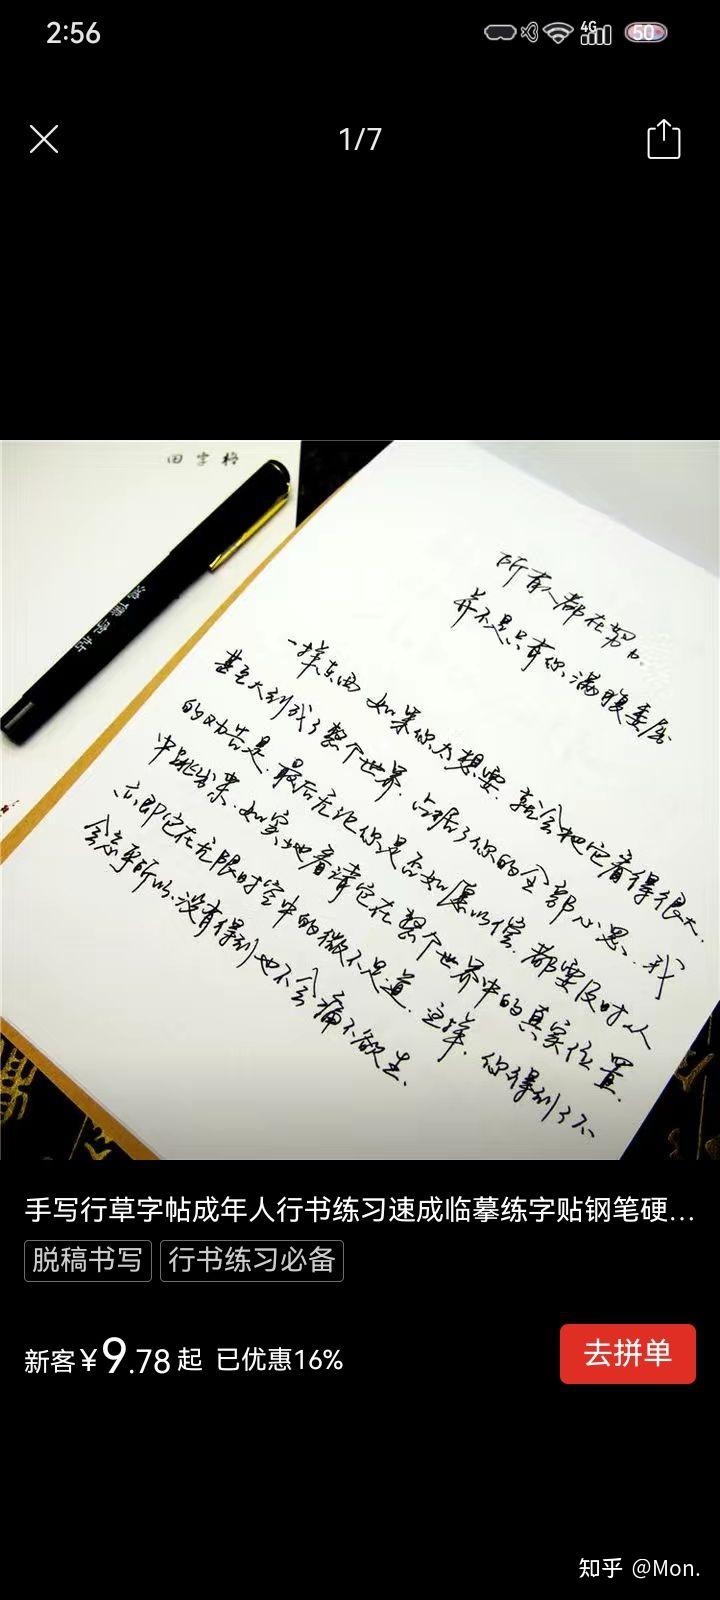 2:56
4G
50
1/7
田字格
所有人都在努力
并不是只有你满腹委屈
一样东西 如果你太想要.就会把它看得很大.
甚至大到成了整个世界.占据了你的全部心思.我
的劝告是.最后无论你是否如愿以偿.都要及时从
中跳出来.如实地看清它在整个世界中的真实位置.
亦即它在无限时空中的微不足道.这样.你得到了不
会忘乎所以.没有得到也不会痛不欲生.
手写行草字帖成年人行书练习速成临摹练字贴钢笔硬...
脱稿书写 行书练习必备
新客¥9.78起 已优惠16%
去拼单
知乎 @Mon.